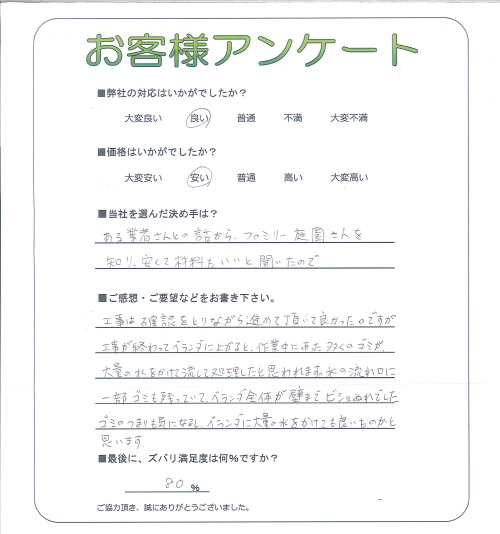 お客様アンケート
■弊社の対応はいかがでしたか？
大変良い 良い 普通 不満 大変不満
■価格はいかがでしたか？
大変安い 安い 普通 高い 大変高い
■当社を選んだ決め手は？
ある業者さんとの話から、ファミリー庭園さんを
知り、安くて材料もいいと聞いたので
■ご感想・ご要望などをお書き下さい。
工事は確認をとりながら進めて頂いて良かったのですが
工事が終わってベランダに上がると、作業中に出た多くのゴミが、
大量の水をかけて流して処理したと思われます。水の流れ口に
一部ゴミも残っていて、ベランダ全体が壁までビショぬれでした
ゴミのつまりも気になるし、ベランダに大量の水をかけても良いものかと
思います。
■最後に、ズバリ満足度は何%ですか？
80 %
ご協力頂き、誠にありがとうございました。